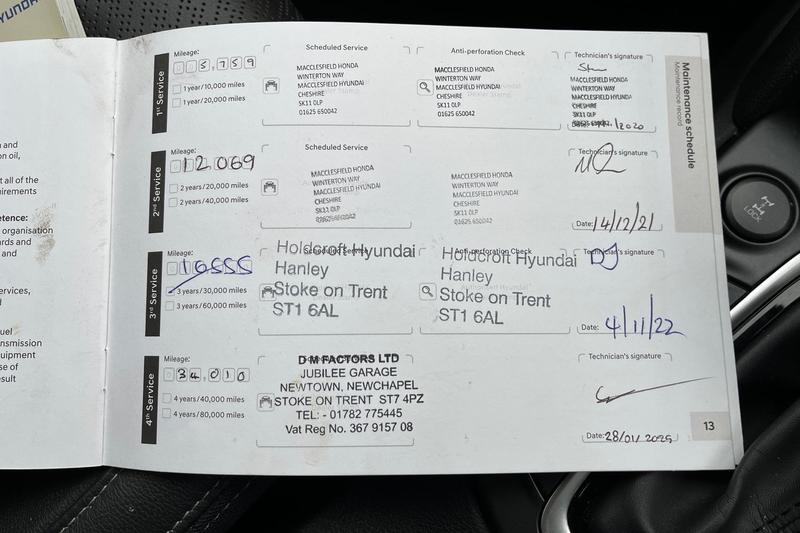 YUNDAI
and
on oil,
t all of the
uirements
etence:
organisation
ards and
and
ervices,
uel
nsmission
uipment
se of
sult
Maintenance schedule
Maintenance record
1st Service
Mileage:
05,759
1 year/10,000 miles
1 year/20,000 miles
Scheduled Service
MACCLESFIELD HONDA
WINTERTON WAY
MACCLESFIELD HYUNDAI
CHESHIRE
SK11 0LP
01625 650042
Anti-perforation Check
MACCLESFIELD HONDA
WINTERTON WAY
MACCLESFIELD HYUNDAI
CHESHIRE
SK11 0LP
01625 650042
Technician's signature
MACCLESFIELD HONDA
WINTERTON WAY
MACCLESFIELD HYUNDAI
CHESHIRE
SK11 0LP
/2020
2nd Service
Mileage:
12 069
2 years/20,000 miles
2 years/40,000 miles
Scheduled Service
MACCLESFIELD HONDA
WINTERTON WAY
MACCLESFIELD HYUNDAI
CHESHIRE
SK11 0LP
01625 650042
MACCLESFIELD HONDA
WINTERTON WAY
MACCLESFIELD HYUNDAI
CHESHIRE
SK11 0LP
01625 650042
Technician's signature
Date: 14/12/21
3rd Service
Mileage:
16555
3 years/30,000 miles
3 years/60,000 miles
Scheduled Service
Holdcroft Hyundai
Hanley
Stoke on Trent
ST1 6AL
Anti-perforation Check
Holdcroft Hyundai
Hanley
Stoke on Trent
ST1 6AL
Technician's signature
DJ
Date: 4/11/22
4th Service
Mileage:
34,010
4 years/40,000 miles
4 years/80,000 miles
D M FACTORS LTD
JUBILEE GARAGE
NEWTOWN, NEWCHAPEL
STOKE ON TRENT ST7 4PZ
TEL: - 01782 775445
Vat Reg No. 367 9157 08
Technician's signature
Date: 28/01/2025
13
LOCK